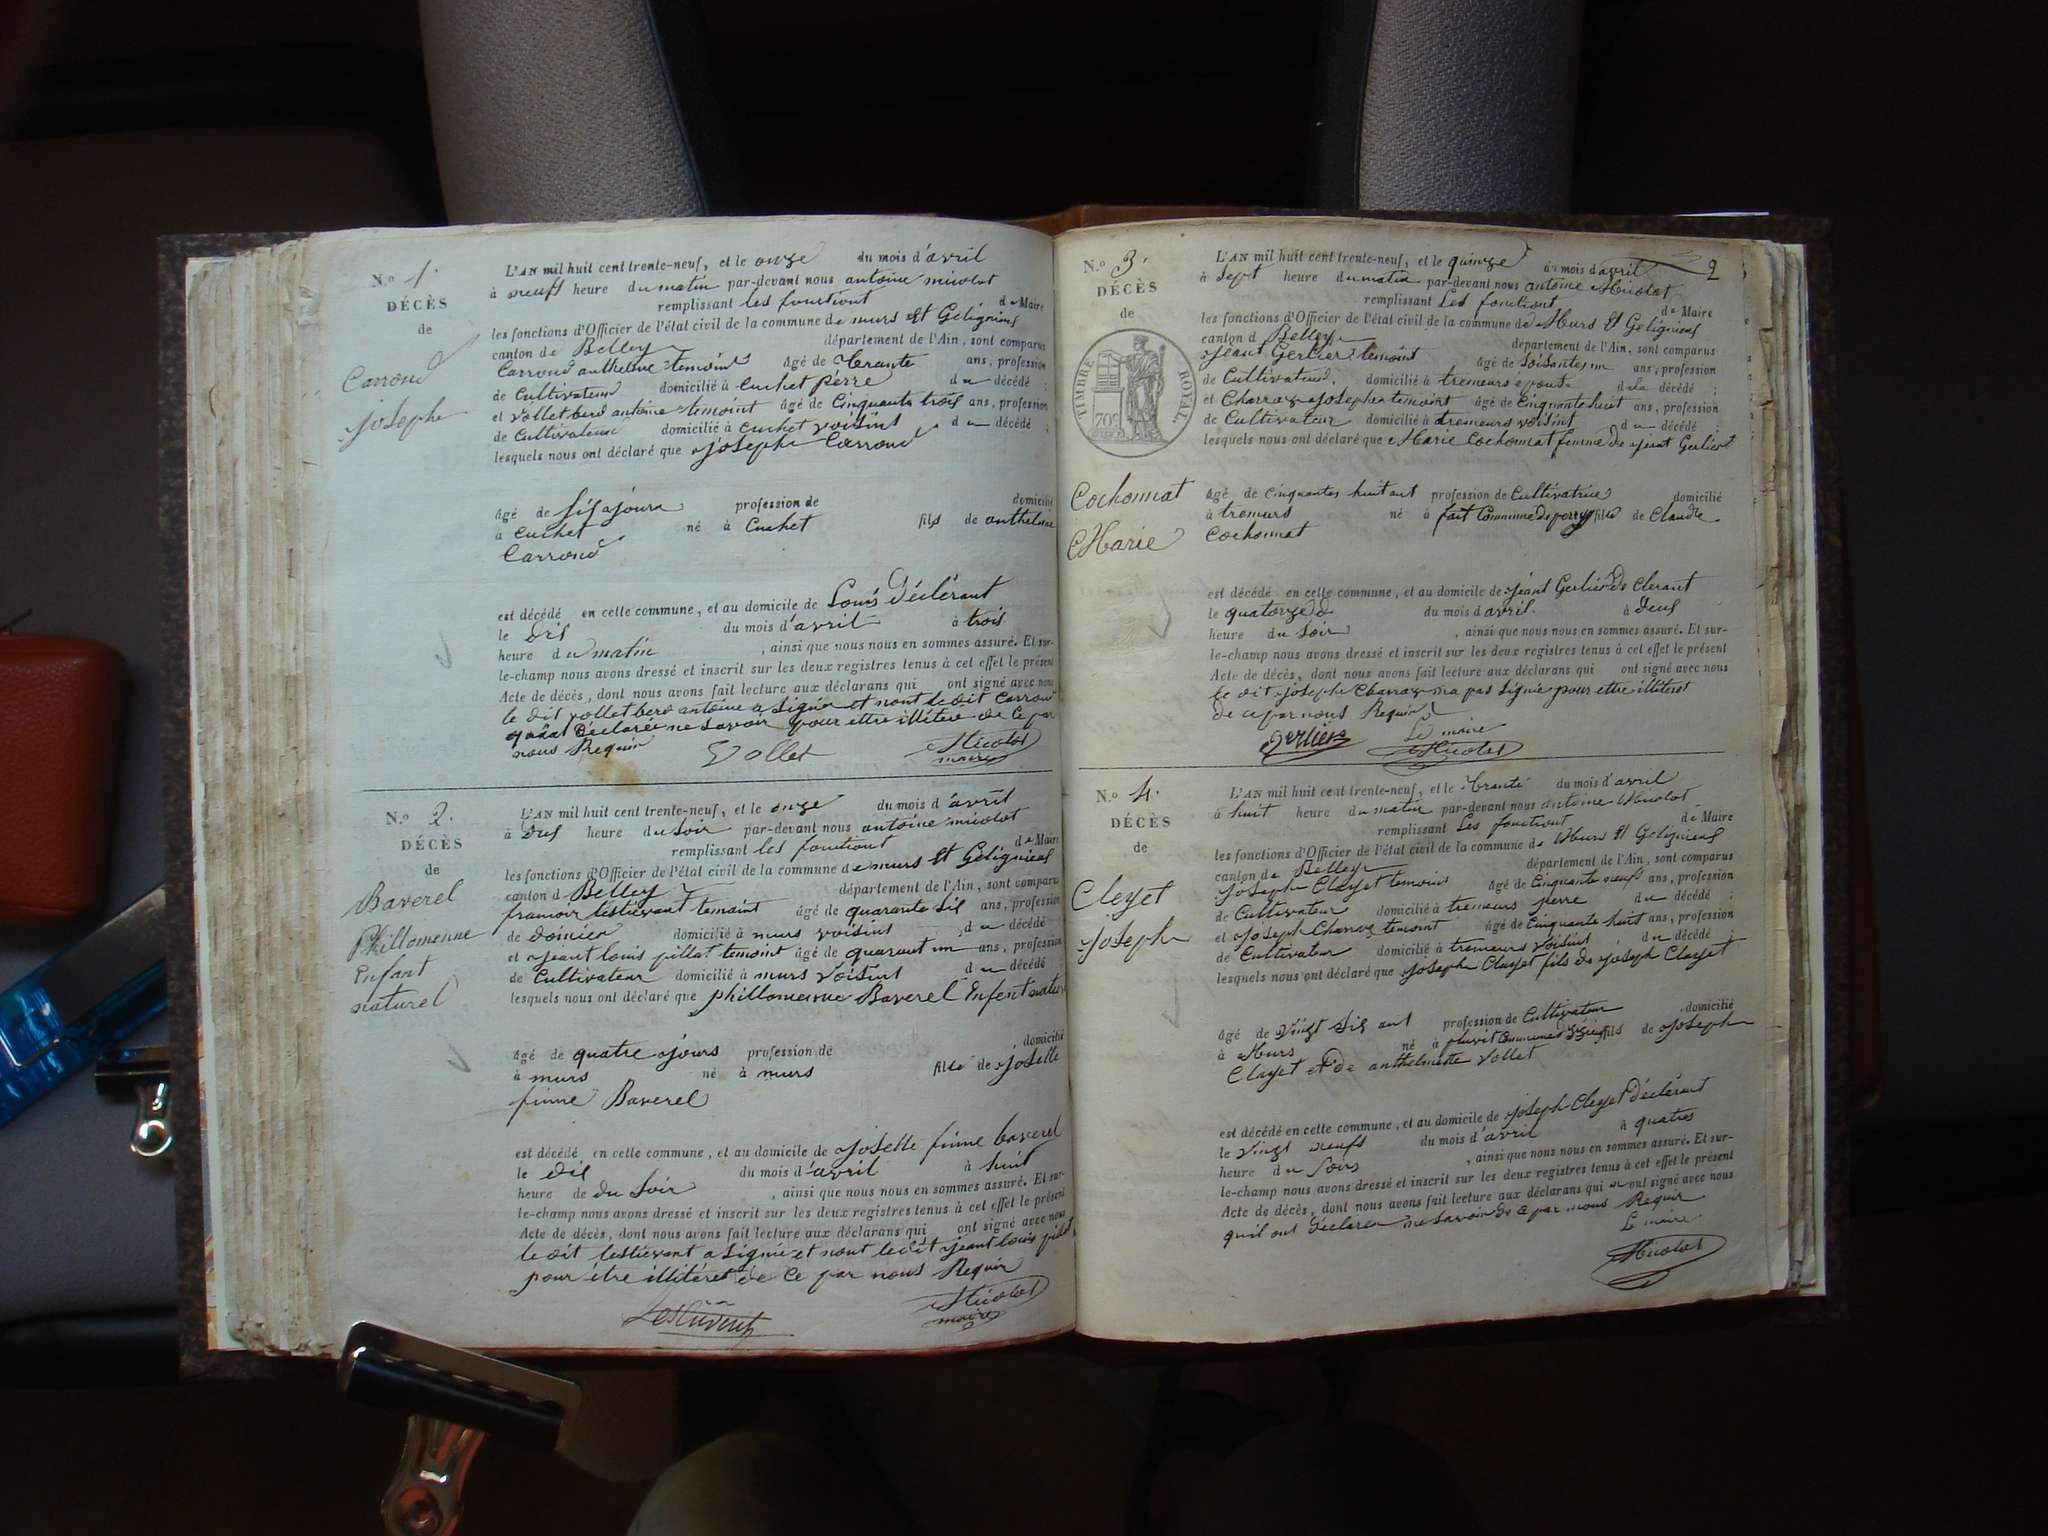 N.o 1.
DÉCÈS
de
Carroud
Joseph
L'AN mil huit cent trente-neuf, et le onze du mois d'avril
à neuf heure du matin par-devant nous antoine micolot
remplissant les fonctiont de Maire
les fonctions d'Officier de l'état civil de la commune de murs Et Geligniens
canton de Belley département de l'Ain, sont comparus
Carroud anthelme temoint âgé de trante ans, profession
de Cultivateur domicilié à Cuchet perre du décédé ;
et volletberd antoine temoint âgé de Cinquante trois ans, profession
de Cultivateur domicilié à cuchet voisint du décédé ;
lesquels nous ont déclaré que Joseph Carroud
âgé de jours profession de domicilié
à Cuchet né à Cuchet fils de anthelme
Carroud
est décédé en cette commune, et au domicile de déclérant
le dis du mois d'avril à trois
heure du matin , ainsi que nous nous en sommes assuré. Et sur-
le-champ nous avons dressé et inscrit sur les deux registres tenus à cet effet le présent
Acte de décès, dont nous avons fait lecture aux déclarans qui ont signé avec nous
le dit volletberd antoine a signé et nont ledit Carroud
déclarée ne savoir pour ettre illitere de Ce par
nous Requir
Vollet Micolot
maire
N.o 2.
DÉCÈS
de
Baverel
Phillomenne
Enfant
naturel
L'AN mil huit cent trente-neuf, et le onze du mois d'avril
à heure du soir par-devant nous antoine micolot
remplissant les fonctiont de Maire
les fonctions d'Officier de l'état civil de la commune de murs Et Geligniens
canton d Belley département de l'Ain, sont comparus
temoint âgé de quarante sis ans, profession
de domicilié à murs voisint du décédé ;
et Jeant louis pillot temoint âgé de quarant un ans, profession
de Cultivateur domicilié à murs voisint du décédé ;
lesquels nous ont déclaré que phillomenne Baverel Enfent
âgé de quatre jours profession de domicilié
à murs né à murs de Joselle
finne Baverel
est décédé en cette commune, et au domicile de Joselle finne baverel
le dis du mois d'avril à huit
heure de du soir , ainsi que nous nous en sommes assuré. Et sur-
le-champ nous avons dressé et inscrit sur les deux registres tenus à cet effet le présent
Acte de décès, dont nous avons fait lecture aux déclarans qui ont signé avec nous
le dit a signée et nont ledit Jeant louis pillot
pour être illitéret de Ce par nous Requir
Micolot
maire
2
N.o 3.
DÉCÈS
de
TIMBRE ROYAL
70c
Cochonnat
Marie
L'AN mil huit cent trente-neuf, et le quinze du mois d'avril
à sept heure du matin par-devant nous antoine Micolot
remplissant Les fonctiont de Maire
les fonctions d'Officier de l'état civil de la commune de Murs Et Geligniens
canton d Belley département de l'Ain, sont comparus
Jeant Gerlier temoint âgé de soisantes un ans, profession
de Cultivateur, domicilié à tremeurs epouts de la décédé ;
et Charraz Joseph temoint âgé de Cinquante huit ans, profession
de Cultivateur domicilié à tremeurs voisint du décédé ;
lesquels nous ont déclaré que Marie Cochonnat femme de Jeant Gerlier
âgé de cinquantes huit ant profession de Cultivatrice domicilié
à tremurs né à Commune de de Claude
Cochonnat
est décédé en cette commune, et au domicile de Jeant Gerlier De clerant
le quatorze du mois d'avril à deus
heure du soir , ainsi que nous nous en sommes assuré. Et sur-
le-champ nous avons dressé et inscrit sur les deux registres tenus à cet effet le présent
Acte de décès, dont nous avons fait lecture aux déclarans qui ont signé avec nous
le dit Joseph Charraz na pas signée pour ettre illiteret
de ce par nous Requir
Gerlier Le maire
Micolot
N.o 4.
DÉCÈS
de
Cleyet
Joseph
L'AN mil huit cent trente-neuf, et le trante du mois d'avril
à huit heure du matin par-devant nous antoine Micolot
remplissant Les fonctiont de Maire
les fonctions d'Officier de l'état civil de la commune de Murs Et Geligniens
canton de Belley département de l'Ain, sont comparus
Joseph Clayet temoins âgé de Cinquante neuf ans, profession
de Cultivateur domicilié à tremeurs perre du décédé ;
et Joseph Charraz temoint âgé de Cinquante huit ans, profession
de Cultivateur domicilié à tremeurs voisint du décédé ;
lesquels nous ont déclaré que Joseph Clayet fils de Joseph Clayet
âgé de Vingt sis ant profession de Cultivateur domicilié
à Murs né à Commune fils de Joseph
Clayet et de anthelmette vollet
est décédé en cette commune, et au domicile de Joseph Cleyet déclérant
le vingt neuf du mois d'avril à quatres
heure du soirs , ainsi que nous nous en sommes assuré. Et sur-
le-champ nous avons dressé et inscrit sur les deux registres tenus à cet effet le présent
Acte de décès, dont nous avons fait lecture aux déclarans qui ont signé avec nous
quil ont déclarer ne savoir de ce par nous Requir
Le maire
Micolot